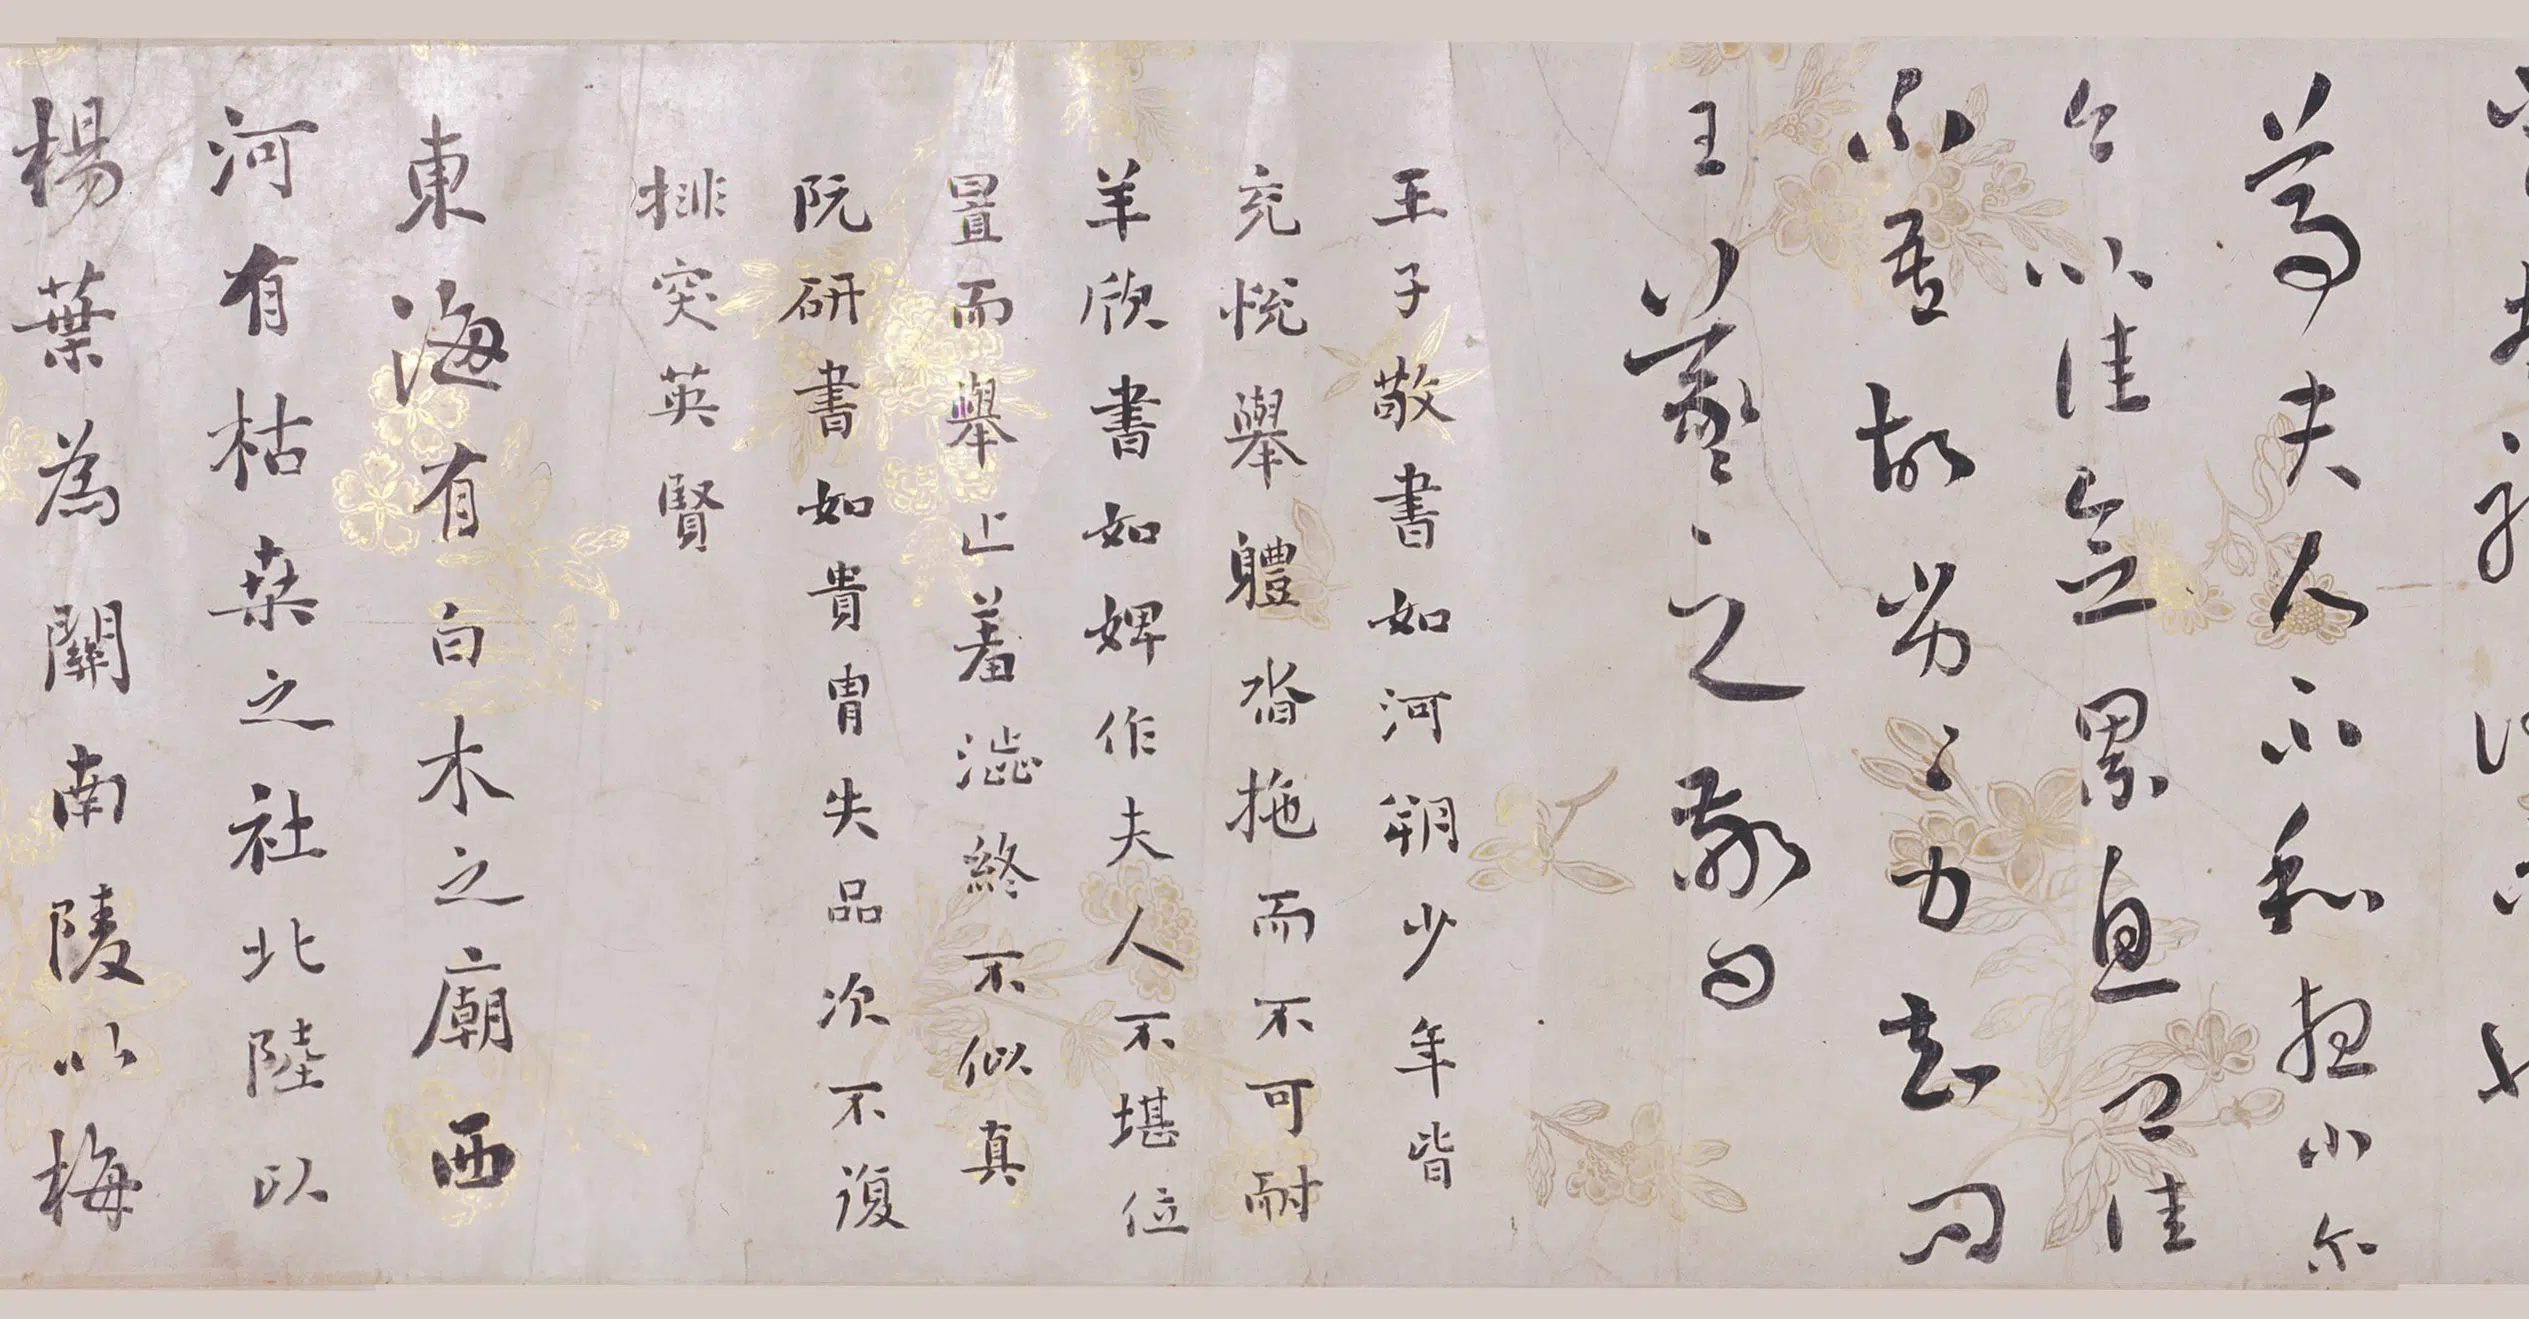 尊夫人不和想小尔
今以佳念累息卿佳
不吾故劣劣力知問
王羲之敬問
王子敬書如河朔少年皆
充悅舉體沓拖而不可耐
羊欣書如婢作夫人不堪位
置而舉止羞澁終不似真
阮研書如貴胄失品次不復
排突英賢
東海有白木之廟西
河有枯桒之社北陸以
楊葉為關南陵以梅